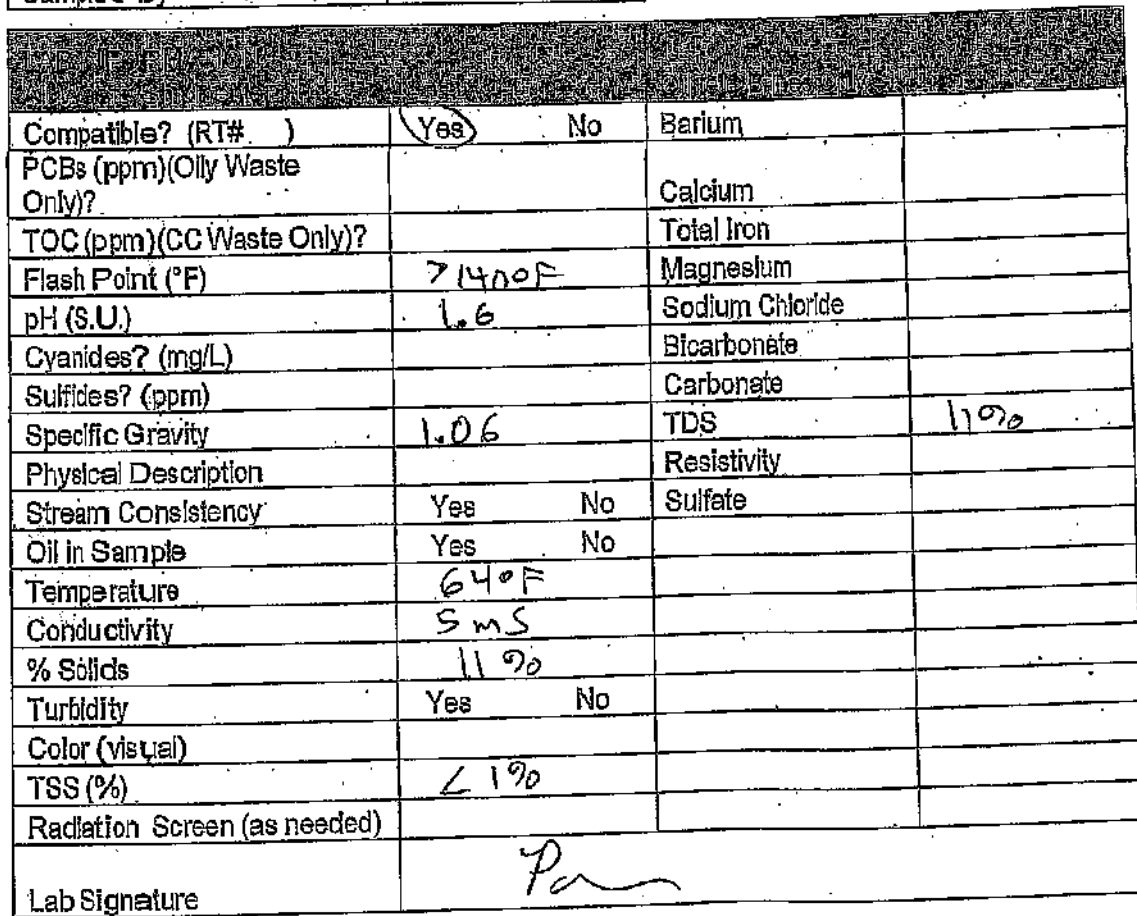 Sampled By
LAB
Compatible? (RT# ) Yes No Barium
PCBs (ppm)(Oily Waste
Only)? Calcium
TOC (ppm)(CC Waste Only)? Total Iron
Flash Point (°F) >140°F Magnesium
pH (S.U.) 1.6 Sodium Chloride
Cyanides? (mg/L) Bicarbonate
Sulfides? (ppm) Carbonate
Specific Gravity 1.06 TDS 11%
Physical Description Resistivity
Stream Consistency Yes No Sulfate
Oil in Sample Yes No
Temperature 64°F
Conductivity 5 mS
% Solids 11%
Turbidity Yes No
Color (visual)
TSS (%) <1%
Radiation Screen (as needed)
Lab Signature